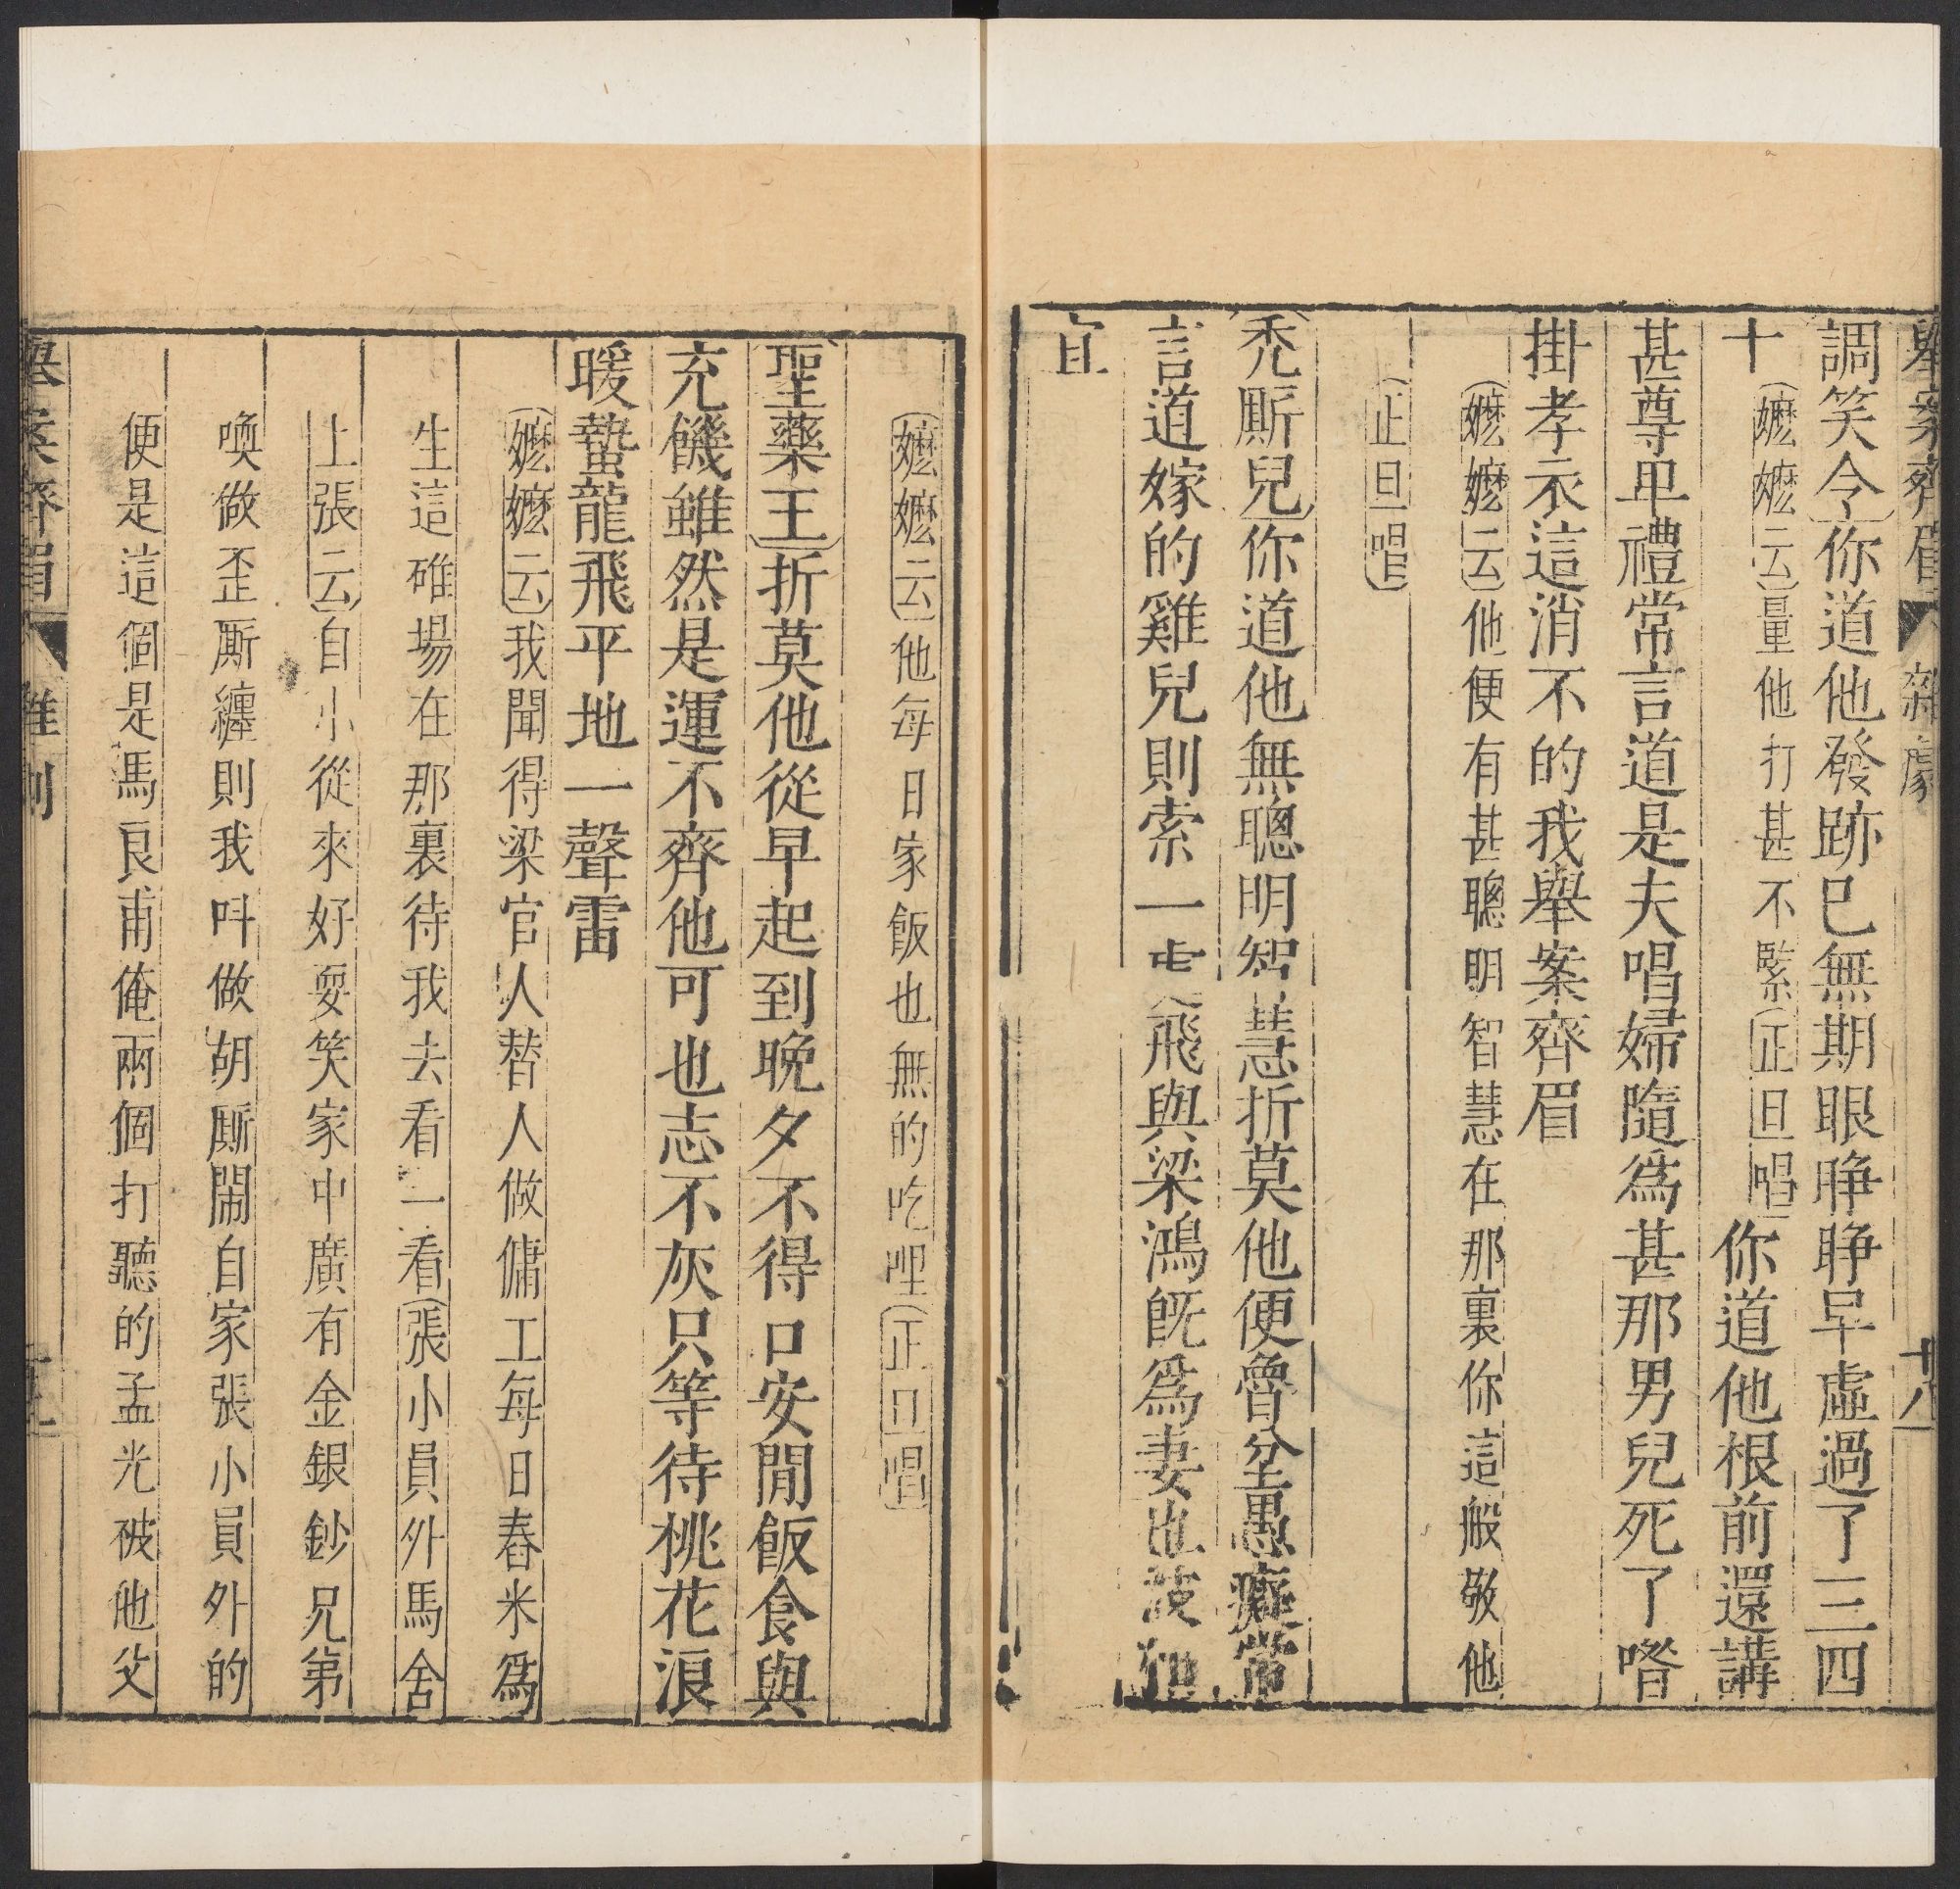 舉案齊眉 雜劇 十八
調笑令你道他發跡已無期眼睜睜早虛過了三四
十嬤嬤云量他打甚不緊正旦唱你道他根前還講
甚尊卑禮常言道是夫唱婦隨爲甚那男兒死了喒
掛孝衣這消不的我舉案齊眉
嬤嬤云他便有甚聰明智慧在那裏你這般敬他
正旦唱
禿厮兒你道他無聰明智慧折莫他便魯坌愚癡常
言道嫁的雞兒則索一處飛與梁鴻旣爲妻也波
宜
嬤嬤云他每日家飯也無的吃哩正旦唱
聖藥王折莫他從早起到晚夕不得口安閒飯食與
充饑雖然是運不齊他可也志不灰只等待桃花浪
暖蟄龍飛平地一聲雷
嬤嬤云我聞得梁官人替人做傭工每日舂米爲
生這碓場在那裏待我去看一看張小員外馬舍
上張云自小從來好耍笑家中廣有金銀鈔兄弟
喚做歪厮纏則我呌做胡厮鬧自家張小員外的
便是這個是馬良甫俺兩個打聽的孟光被他父
舉案齊眉 雜劇